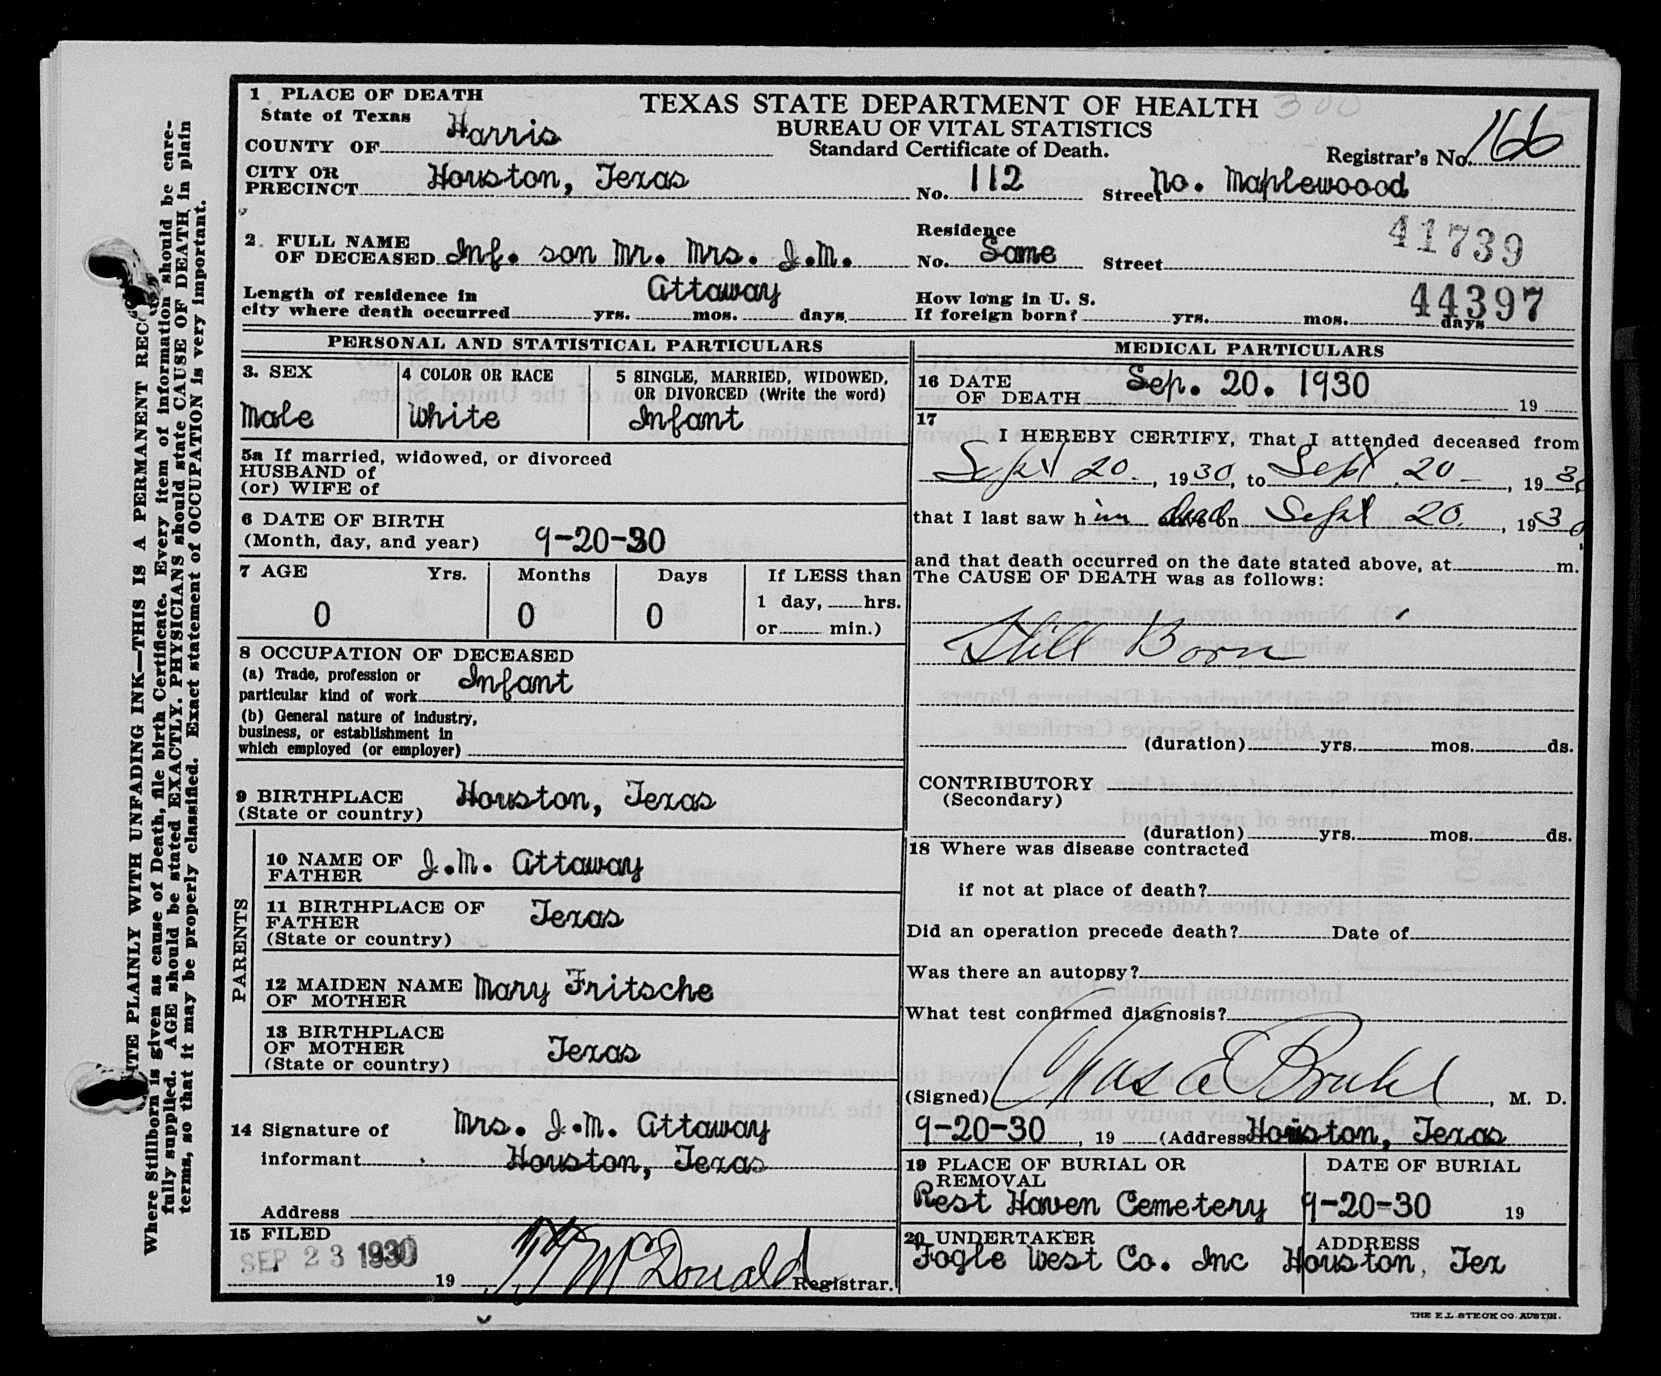 1 PLACE OF DEATH
TEXAS STATE DEPARTMENT OF HEALTH 300
State of Texas
BUREAU OF VITAL STATISTICS
COUNTY OF Harris
Standard Certificate of Death.
Registrar's No. 166
CITY OR PRECINCT Houston, Texas No. 112 Street No. Maplewoood
41739
2. FULL NAME OF DECEASED Inf. son Mr. Mrs. J.M. Attaway
Residence No. Same Street
44397
Length of residence in city where death occurred yrs. mos. days.
How long in U. S. If foreign born? yrs. mos. days
PERSONAL AND STATISTICAL PARTICULARS
3. SEX Male
4 COLOR OR RACE White
5 SINGLE, MARRIED, WIDOWED, OR DIVORCED (Write the word) Infant
5a If married, widowed, or divorced
HUSBAND of
(or) WIFE of
6 DATE OF BIRTH
(Month, day, and year) 9-20-30
7 AGE Yrs. Months Days If LESS than
1 day, hrs.
0 0 0
or min.)
8 OCCUPATION OF DECEASED
(a) Trade, profession or
particular kind of work Infant
(b) General nature of industry,
business, or establishment in
which employed (or employer)
9 BIRTHPLACE
(State or country) Houston, Texas
PARENTS
10 NAME OF FATHER J.M. Attaway
11 BIRTHPLACE OF FATHER
(State or country) Texas
12 MAIDEN NAME OF MOTHER Mary Fritsche
13 BIRTHPLACE OF MOTHER
(State or country) Texas
14 Signature of informant Mrs. J.M. Attaway
Houston, Texas
Address
15 FILED
SEP 23 1930 19 McDonald Registrar.
MEDICAL PARTICULARS
16 DATE OF DEATH Sep. 20. 1930 19
17
I HEREBY CERTIFY, That I attended deceased from
Sept 20, 1930, to Sept 20, 1930
that I last saw him alive dead on Sept 20, 1930
and that death occurred on the date stated above, at m.
The CAUSE OF DEATH was as follows:
Still Born
(duration) yrs. mos. ds.
CONTRIBUTORY
(Secondary)
(duration) yrs. mos. ds.
18 Where was disease contracted
if not at place of death?
Did an operation precede death? Date of
Was there an autopsy?
What test confirmed diagnosis?
(Signed) Chas E Bruhl, M. D.
9-20-30, 19 (Address Houston, Texas
19 PLACE OF BURIAL OR REMOVAL
Rest Haven Cemetery
DATE OF BURIAL
9-20-30 19
20 UNDERTAKER
Fogle West Co. Inc
ADDRESS
Houston, Tex
THE E.L. STECK CO. AUSTIN.
WRITE PLAINLY WITH UNFADING INK—THIS IS A PERMANENT REC
Where Stillborn is given as cause of Death, file birth Certificate. Every item of information should be care-
fully supplied. AGE should be stated EXACTLY. PHYSICIANS should state CAUSE OF DEATH in plain
terms, so that it may be properly classified. Exact statement of OCCUPATION is very important.